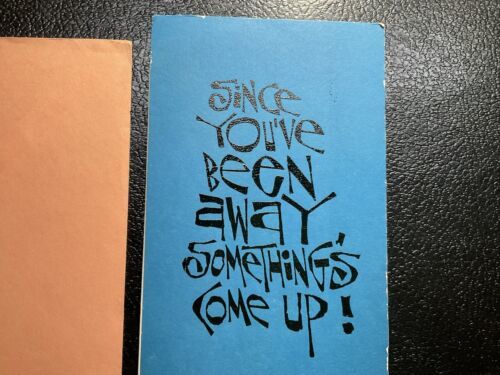 SINCE
YOU'VE
BEEN
AWAY,
SOMETHING'S
COME UP!